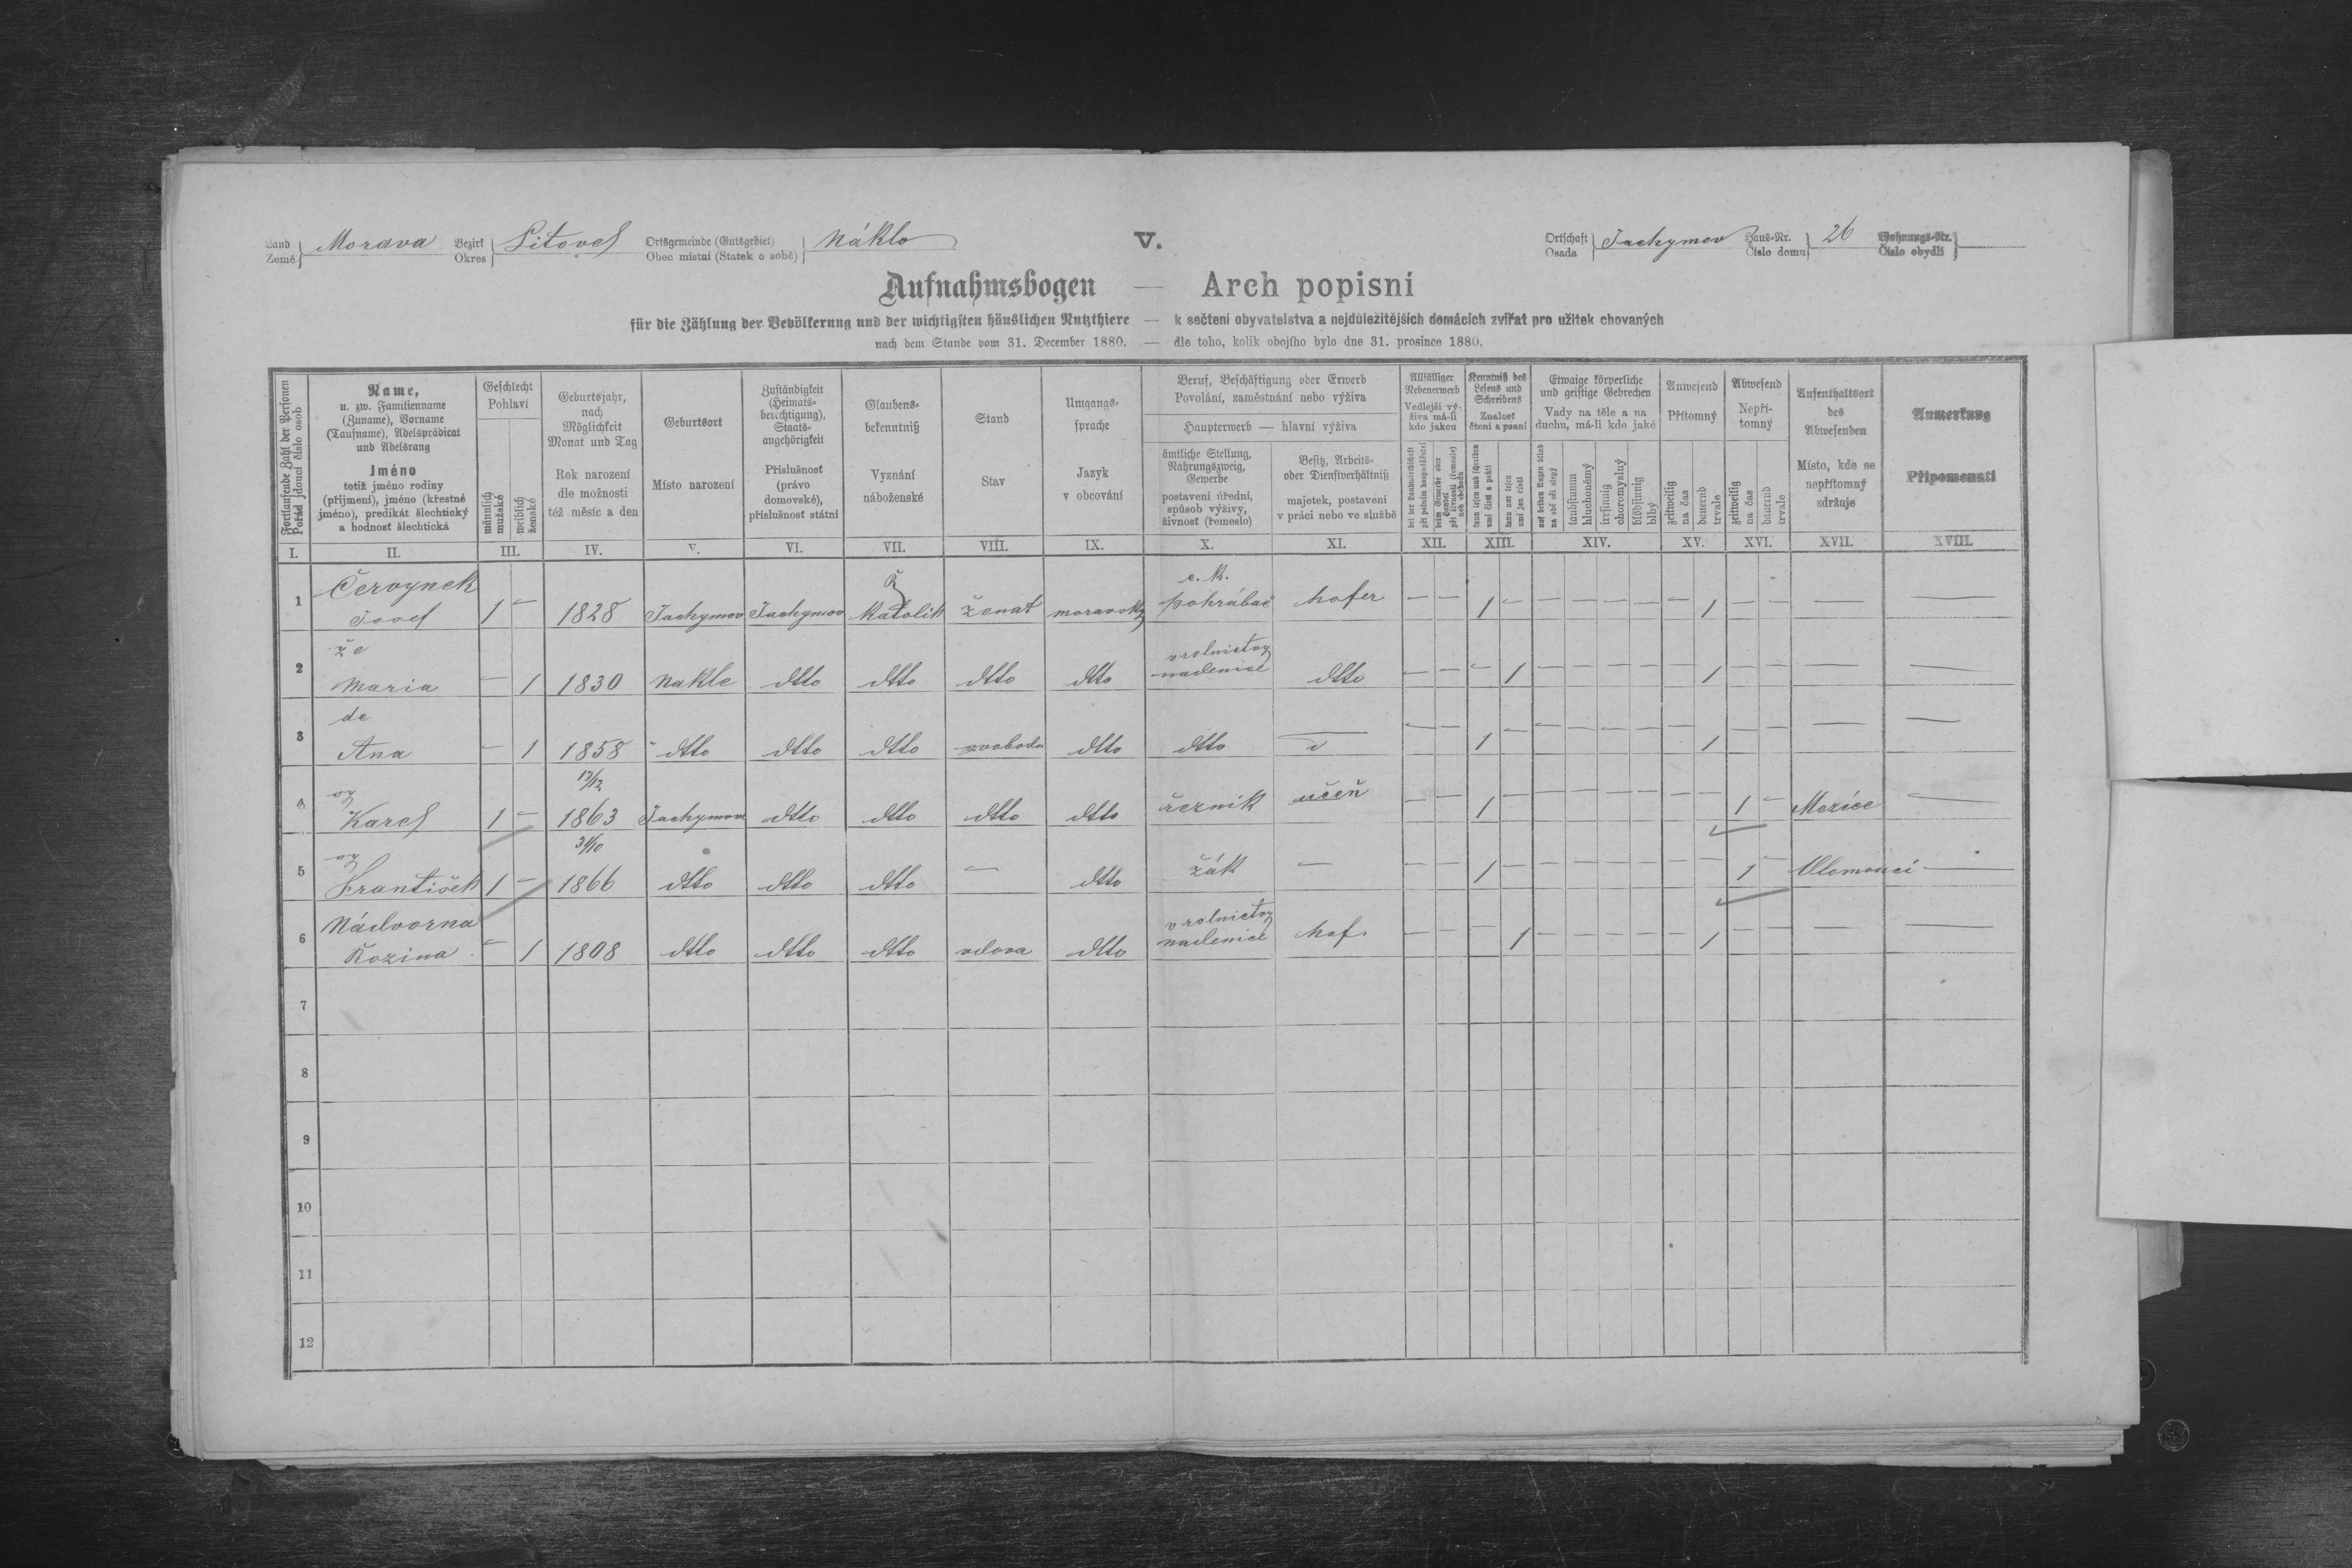 Land Země } Morava Bezirk Okres } Litovel Ortsgemeinde (Gutsgebiet) Obec místní (Statek o sobě) } Náklo
V.
Ortschaft Osada } Jachymov Haus-Nr. Číslo domu } 26 Wohnungs-Nr. Číslo obydlí }
Aufnahmsbogen — Arch popisní
für die Zählung der Bevölkerung und der wichtigsten häuslichen Nutzthiere — k sečtení obyvatelstva a nejdůležitějších domácích zvířat pro užitek chovaných
nach dem Stande vom 31. December 1880. — dle toho, kolik obojího bylo dne 31. prosince 1880.
Fortlaufende Zahl der Personen
Pořád jdoucí číslo osob
Name,
u. zw. Familienname
(Zuname), Vorname
(Taufname), Adelsprädicat
und Adelsrang
Jméno
totiž jméno rodiny
(příjmení), jméno (křestné
jméno), predikát šlechtický
a hodnost šlechtická
Geschlecht
Pohlaví
männlich
mužské
weiblich
ženské
Geburtsjahr,
nach
Möglichkeit
Monat und Tag
Rok narození
dle možnosti
též měsíc a den
Geburtsort
Místo narození
Zuständigkeit
(Heimats-
berechtigung),
Staats-
angehörigkeit
Příslušnost
(právo
domovské),
příslušnost státní
Glaubens-
bekenntniß
Vyznání
náboženské
Stand
Stav
Umgangs-
sprache
Jazyk
v obcování
Beruf, Beschäftigung oder Erwerb
Povolání, zaměstnání nebo výživa
Haupterwerb — hlavní výživa
ämtliche Stellung,
Nahrungszweig,
Gewerbe
postavení úřední,
spůsob výživy,
živnost (řemeslo)
Besitz, Arbeits-
oder Dienstverhältniß
majetek, postavení
v práci nebo ve službě
Allfälliger
Nebenerwerb
Vedlejší vý-
živa má-li
kdo jakou
bei der Landwirthschaft
při polním hospodářství
beim Gewerbe oder
Handel
při živnosti (řemesle)
neb obchodu
Kenntniß des
Lesens und
Schreibens
Znalost
čtení a psaní
kann lesen und schreiben
umí čísti a psáti
kann nur lesen
umí jen čísti
Etwaige körperliche
und geistige Gebrechen
Vady na těle a na
duchu, má-li kdo jaké
auf beiden Augen blind
na obě oči slepý
taubstumm
hluchoněmý
irrsinnig
choromyslný
blödsinnig
blbý
Anwesend
Přítomný
zeitweilig
na čas
dauernd
trvale
Abwesend
Nepří-
tomný
zeitweilig
na čas
dauernd
trvale
Aufenthaltsort
des
Abwesenden
Místo, kde se
nepřítomný
zdržuje
Anmerkung
Připomenutí
I. II. III. IV. V. VI. VII. VIII. IX. X. XI. XII. XIII. XIV. XV. XVI. XVII. XVIII.
Červynek ř c. k.
1 Josef 1 — 1828 Jachymov Jachymov Katolík ženat moravsky pohrábač hofer — — 1 — — — — — — 1 — — — —
že v rolnictvy
2 Maria — 1 1830 Nakle dtto dtto dtto dtto nadenice dtto — — — 1 — — — — — 1 — — — —
dc
3 Ana — 1 1858 dtto dtto dtto svoboda dtto dtto — — 1 — — — — — 1 — — — —
sy 13/12
4 Karel 1 — 1863 Jachymově dtto dtto dtto dtto řezník učeň — — 1 — — — — — — — 1 — Mezice —
sy 31/10
5 František 1 — 1866 dtto dtto dtto — dtto žák — — — 1 — — — — — — — 1 — Olomouci —
Nádvorna v rolnictvy
6 Rozina — 1 1808 dtto dtto dtto vdova dtto nadenice hof. — — — 1 — — — — — 1 — — — —
7
8
9
10
11
12